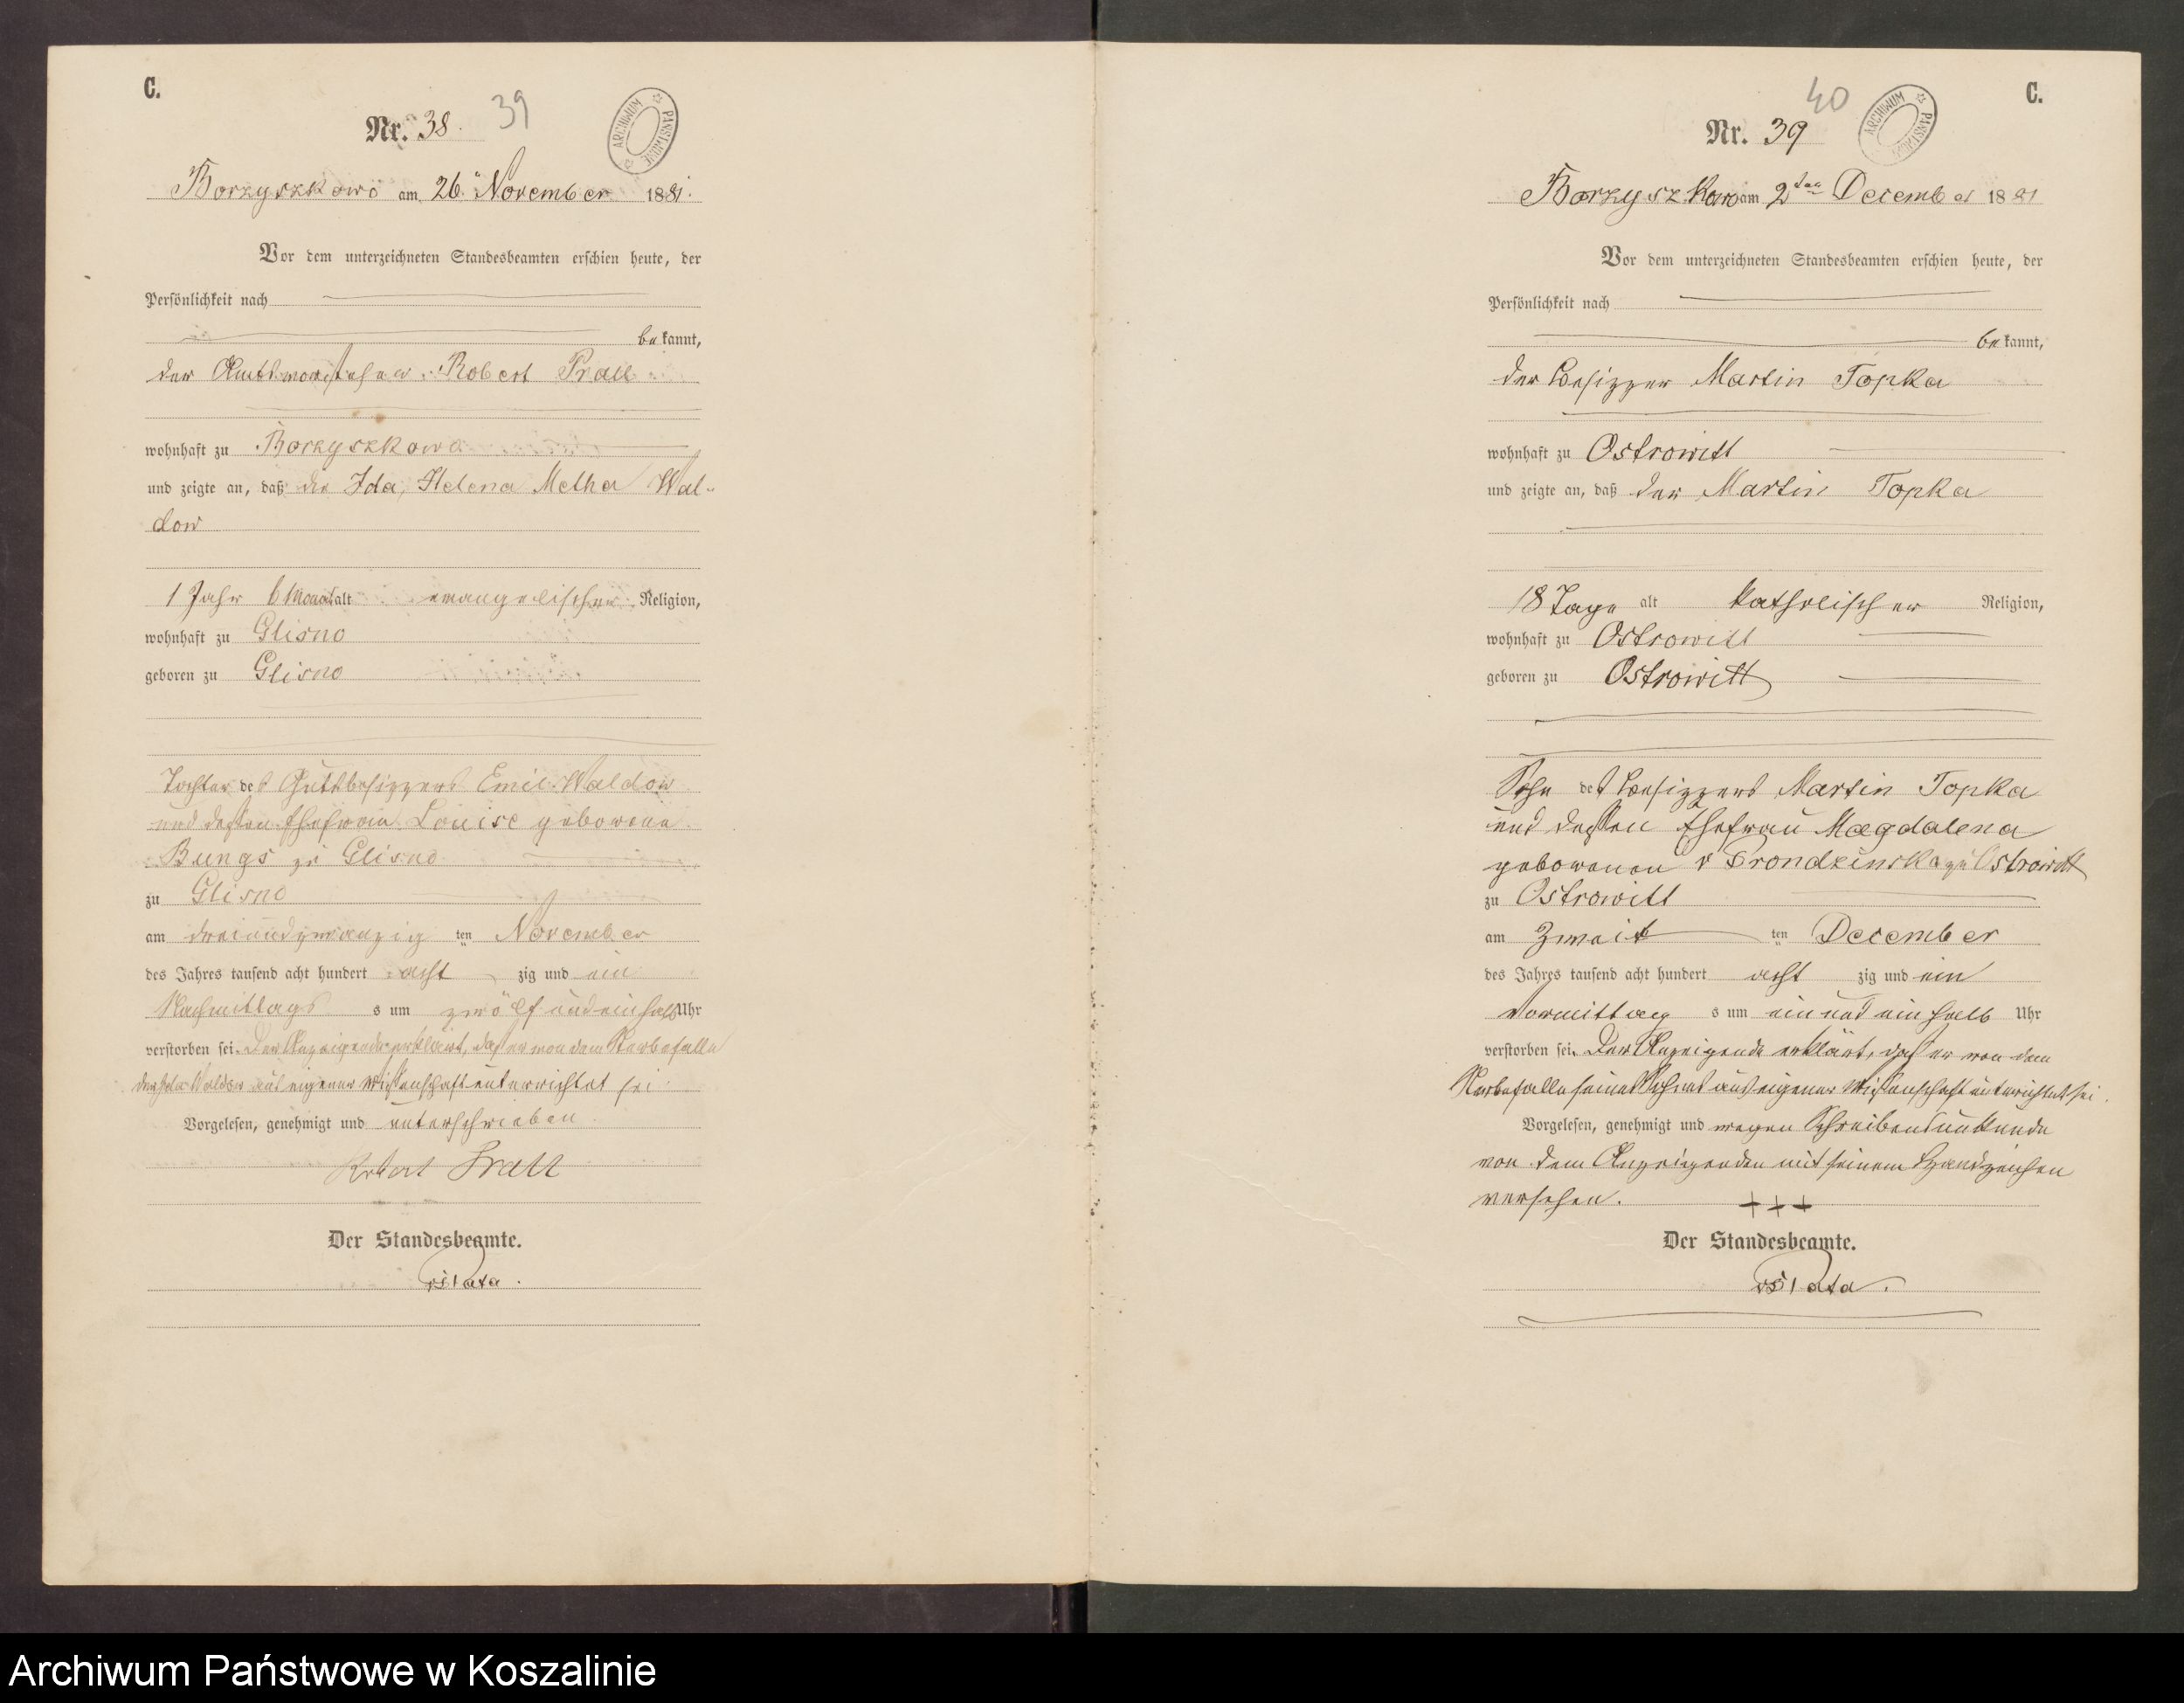 C.
Nr. 38. 39
ARCHIWUM PAŃSTWOWE
Borzyszkowo am 26. November 1881.
Vor dem unterzeichneten Standesbeamten erschien heute, der
Persönlichkeit nach
bekannt,
der Amtsvorsteher Robert Prall
wohnhaft zu Borzyszkowo
und zeigte an, daß die Ida, Helena Metha Wal-
dow
1 Jahr 6 Monat alt evangelischer Religion,
wohnhaft zu Glisno
geboren zu Glisno
Tochter des Gutsbesizzers Emil Waldow
und dessen Ehefrau Louise geborene
Bungs zu Glisno
zu Glisno
am dreiundzwanzig ten November
des Jahres tausend acht hundert acht zig und ein
Nachmittags s um zwölf und ein halb Uhr
verstorben sei. Der Anzeigende erklärt, daß er von dem Sterbefalle
der Ida Waldow aus eigener Wissenschaft unterrichtet sei.
Vorgelesen, genehmigt und unterschrieben.
Robert Prall
Der Standesbeamte.
C.
Nr. 39 40
ARCHIWUM PAŃSTWOWE
Borzyszkowo am 2ten December 1881
Vor dem unterzeichneten Standesbeamten erschien heute, der
Persönlichkeit nach
bekannt,
der Besizzer Martin Topka
wohnhaft zu Ostrowitt
und zeigte an, daß der Martin Topka
18 Tage alt katholischer Religion,
wohnhaft zu Ostrowitt
geboren zu Ostrowitt
Sohn des Besizzers Martin Topka
und dessen Ehefrau Magdalena
geborenen v Prondzinska zu Ostrowitt
zu Ostrowitt
am zweit ten December
des Jahres tausend acht hundert acht zig und ein
Vormittag s um ein und ein halb Uhr
verstorben sei. Der Anzeigende erklärt, daß er von dem
Sterbefalle seines Sohnes aus eigener Wissenschaft unterrichtet sei.
Vorgelesen, genehmigt und wegen Schreibensunkunde
von dem Anzeigenden mit seinem Handzeichen
versehen. +++
Der Standesbeamte.
Archiwum Państwowe w Koszalinie